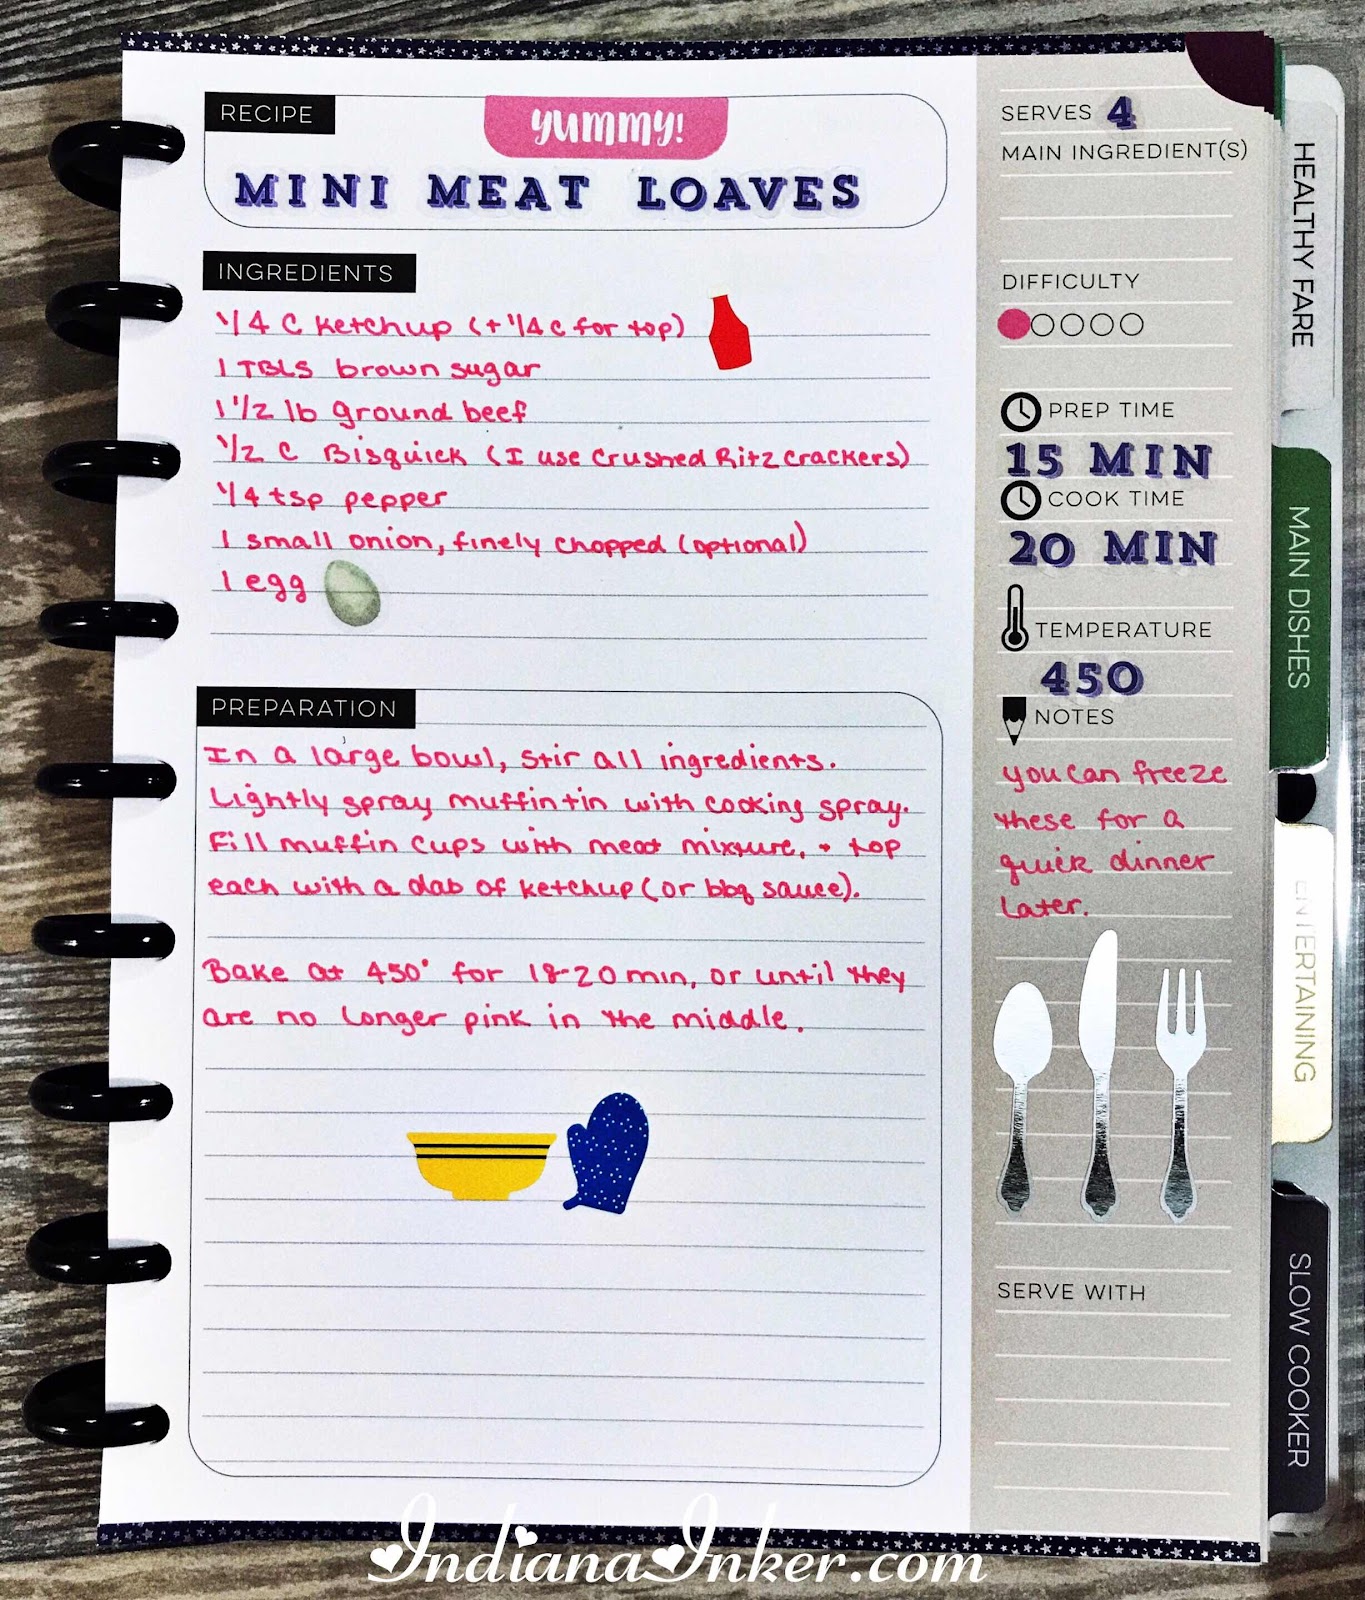 RECIPE
yummy!
MINI MEAT LOAVES
INGREDIENTS
1/4 C ketchup (+ 1/4 c for top)
1 TBLS brown sugar
1 1/2 lb ground beef
1/2 C Bisquick (I use crushed Ritz crackers)
1/4 tsp pepper
1 small onion, finely chopped (optional)
1 egg
PREPARATION
In a large bowl, stir all ingredients.
Lightly spray muffin tin with cooking spray.
Fill muffin cups with meat mixture, + top
each with a dab of ketchup (or bbq sauce).
Bake at 450° for 18-20 min, or until they
are no longer pink in the middle.
SERVES 4
MAIN INGREDIENT(S)
DIFFICULTY
PREP TIME
15 MIN
COOK TIME
20 MIN
TEMPERATURE
450
NOTES
you can freeze
these for a
quick dinner
later.
SERVE WITH
HEALTHY FARE
MAIN DISHES
ENTERTAINING
SLOW COOKER
IndianaInker.com